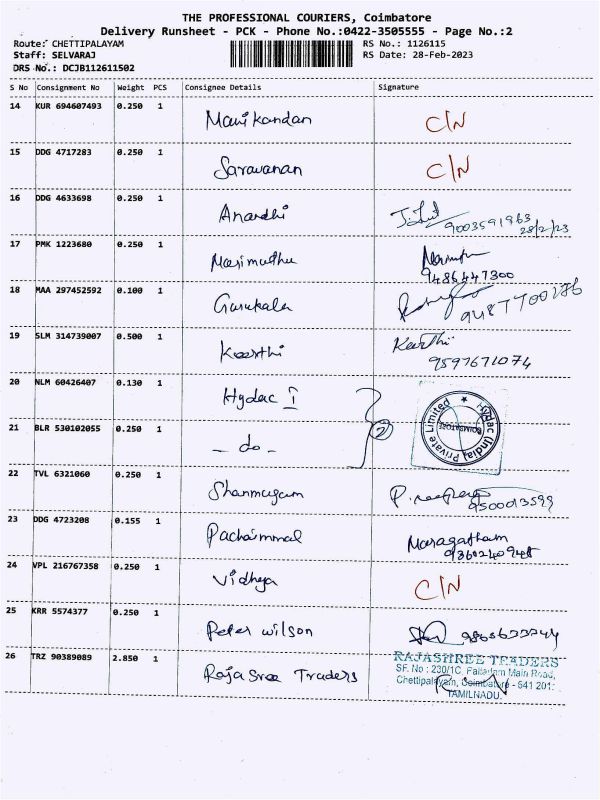 THE PROFESSIONAL COURIERS, Coimbatore
Delivery Runsheet - PCK - Phone No.:0422-3505555 - Page No.:2
Route: CHETTIPALAYAM RS No.: 1126115
Staff: SELVARAJ RS Date: 28-Feb-2023
DRS No.: DCJB112611502
S No Consignment No Weight PCS Consignee Details Signature
14 KUR 694607493 0.250 1 Manikandan C/N
15 DDG 4717283 0.250 1 Saravanan C/N
16 DDG 4633698 0.250 1 Anandhi 9003591963
28/2/23
17 PMK 1223680 0.250 1 Marimuthu
9486447300
18 MAA 297452592 0.100 1 Gurukala 9487700286
19 SLM 314739007 0.500 1 Keerthi Keerthi
9597671074
20 NLM 60426407 0.130 1 Hydac I
21 BLR 530102055 0.250 1 - do - 2 Hydac (India) Private Limited COIMBATORE
22 TVL 6321060 0.250 1 Shanmugam 9500013599
23 DDG 4723208 0.155 1 Pachaimmal Maragatham
24 VPL 216767358 0.250 1 Vidhya C/N
25 KRR 5574377 0.250 1 Peter wilson
26 TRZ 90389089 2.850 1 Raja Sree Traders RAJASHREE TRADERS
SF. No : 230/1C, Palladam Main Road,
Chettipalayam, Coimbatore - 641 201.
TAMILNADU.